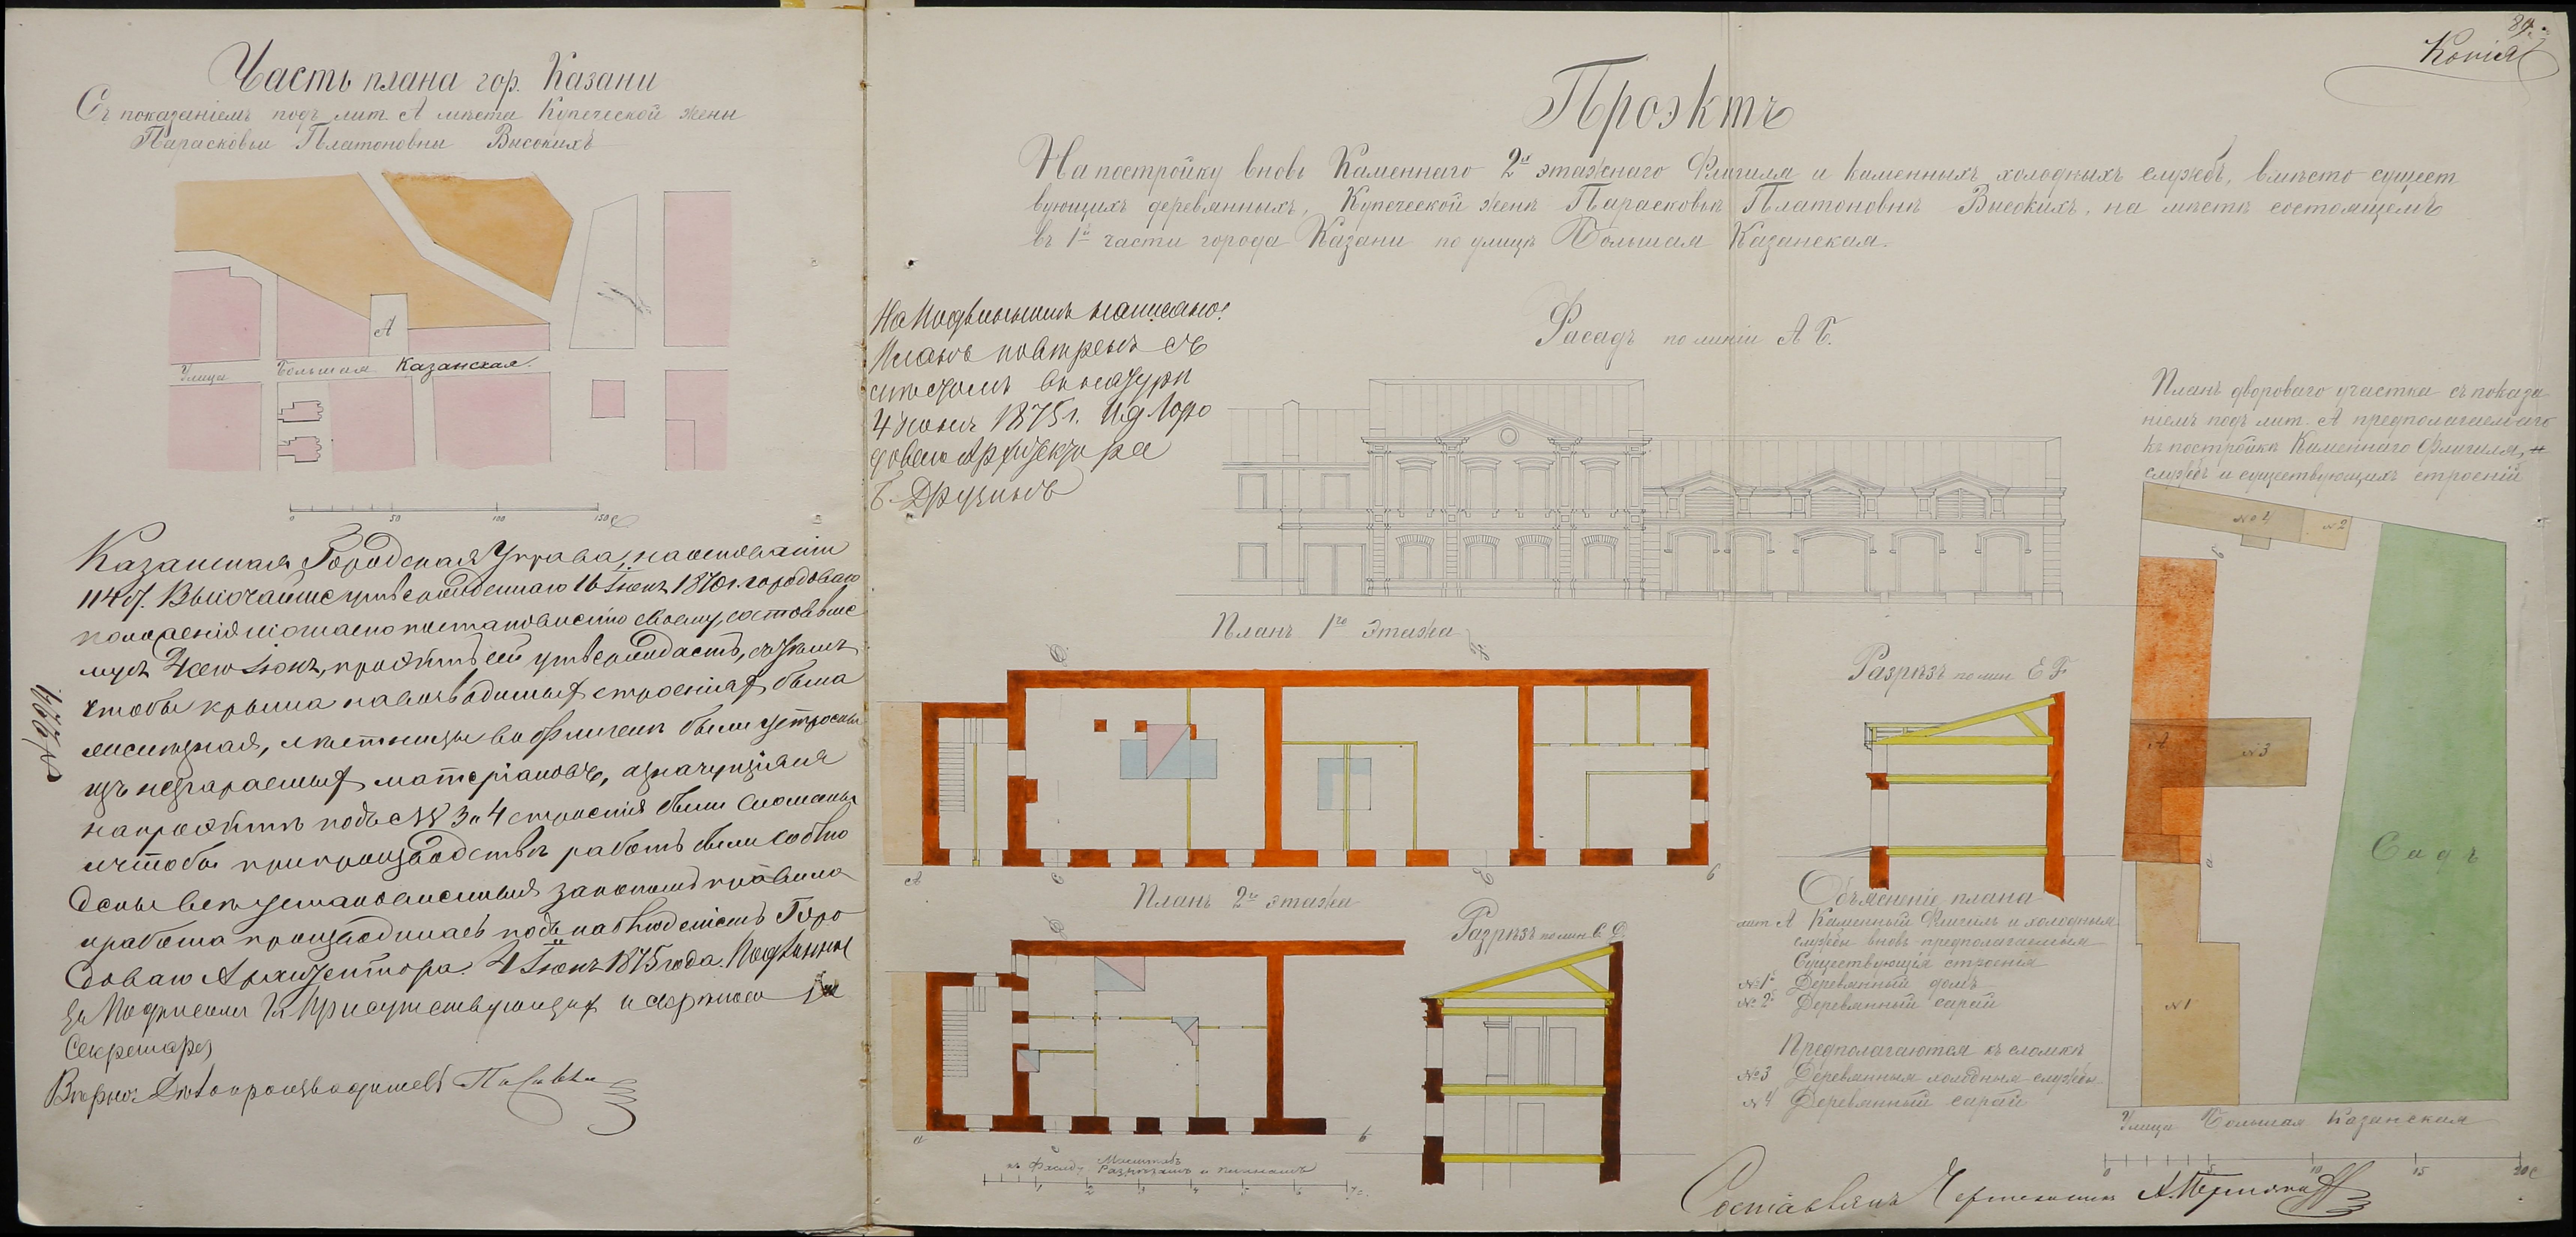 Часть плана гор. Казани
Съ показаніемъ подъ лит. А мѣста Купеческой жены
Парасковьи Платоновны Высокихъ
А
Улица Большая Казанская.
0 50 100 150 С
Казанская Городская Управа, на основаніи
114 ст. Высочайше утвержденнаго 16 Іюня 1870 г. городоваго
положенія и согласно постановленію своему, состоявше
муся 4 сего Іюня, проэктъ сей утверждаетъ, съ тѣмъ
чтобы крыша на возводимыхъ строеніяхъ была
желѣзная, лѣстницы во флигелѣ были устроены
изъ несгараемыхъ матеріаловъ, значущіяся
на проэктѣ подъ №№ 3 и 4 строенія были сломаны
и чтобы при производствѣ работъ были соблю
дены всѣ установленныя закономъ правила
и работа производилась подъ наблюденіемъ Горо
доваго Архитектора. 4 Іюня 1875 года. Подлинный
за подписомъ Гг. Присутствующихъ и скрѣпою
Секретаря
Вѣрно: Дѣлопроизводитель
89.
Копія
Проэктъ
На постройку вновь Каменнаго 2хъ этажнаго Флигиля и каменныхъ холодныхъ службъ, вмѣсто сущест
вующихъ деревянныхъ, Купеческой женѣ Парасковьѣ Платоновнѣ Высокихъ, на мѣстѣ состоящемъ
въ 1й части города Казани по улицѣ Большая Казанская.
На Подлинномъ написано:
Планъ повѣренъ съ
мѣстомъ въ натурѣ
4 Іюня 1875 г. И. д. Горо
доваго Архитектора
Фасадъ по линіи А Б.
Планъ 1го этажа
А Б
Планъ 2го этажа
а б
Масштабъ
къ Фасаду Разрѣзамъ и планамъ
1 2 3 4 5 6 7 с.
Разрѣзъ по лин. С. D.
Разрѣзъ по лин. Е F.
Объясненіе плана
лит. А Каменный Флигиль и холодныя
службы вновь предполагаемыя
Существующія строенія
№ 1й Деревянный домъ
№ 2й Деревянный сарай
Предполагаются къ сломкѣ
№ 3 Деревянныя холодныя службы.
№ 4 Деревянный сарай
Планъ двороваго участка съ показа
ніемъ подъ лит. А предполагаемаго
къ постройкѣ Каменнаго Флигиля, и
службъ и существующихъ строеній
№ 4 № 2
А № 3
Садъ
№ 1
Улица Большая Казанская
0 5 10 15 20 с
Составлялъ Чертежникъ